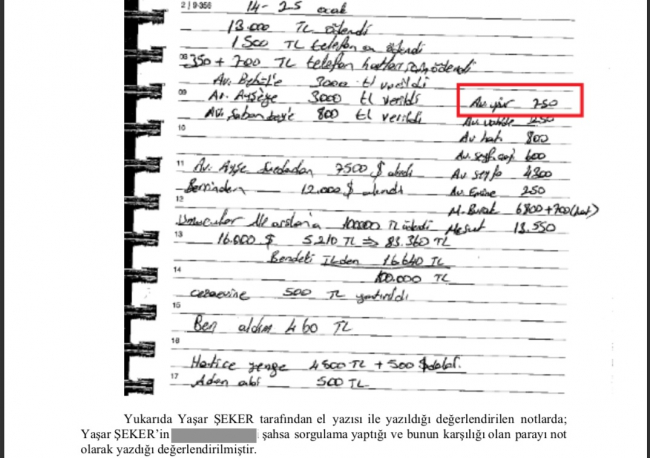 2 | 9-356
14 - 25 ocak
13.000 TL ödendi
1500 TL telefona ödendi
08 350 + 700 TL telefon hatları için ödendi
Av. Behül'e 3000 tl verildi
09 Av. Ayşeye 3000 tl verildi
Av. Şaban bey'e 800 tl verildi
10
11 Av. Ayşe 7500 $ alındı
12.000 $ alındı
12
100000 TL ödendi
13 16.000 $ 5.210 TL ⇒ 83.360 TL
Bendeki TLden 16.640 TL
14 100.000 TL
cezaevine 500 TL yatırıldı
15
Ben aldım 460 TL
16
Hatice yenge 4500 TL + 500 $
17 Adem abi 500 TL
Av. 250
Av. 250
Av. 800
Av. 600
Av. 4300
Av. Emine 250
M. Burak 6800+700 (hat)
Mesut 13.550
Yukarıda Yaşar ŞEKER tarafından el yazısı ile yazıldığı değerlendirilen notlarda;
Yaşar ŞEKER'in şahsa sorgulama yaptığı ve bunun karşılığı olan parayı not
olarak yazdığı değerlendirilmiştir.